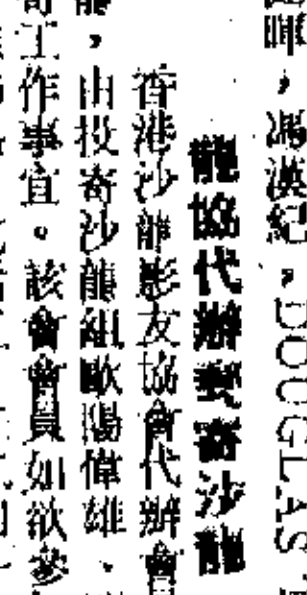 暉，馮漢紀，DOUGLAS
龍協代辦寄沙龍
香港沙龍影友協會代辦會員
，由投寄沙龍組歐陽偉雄、
寄工作事宜。該會會員如欲參